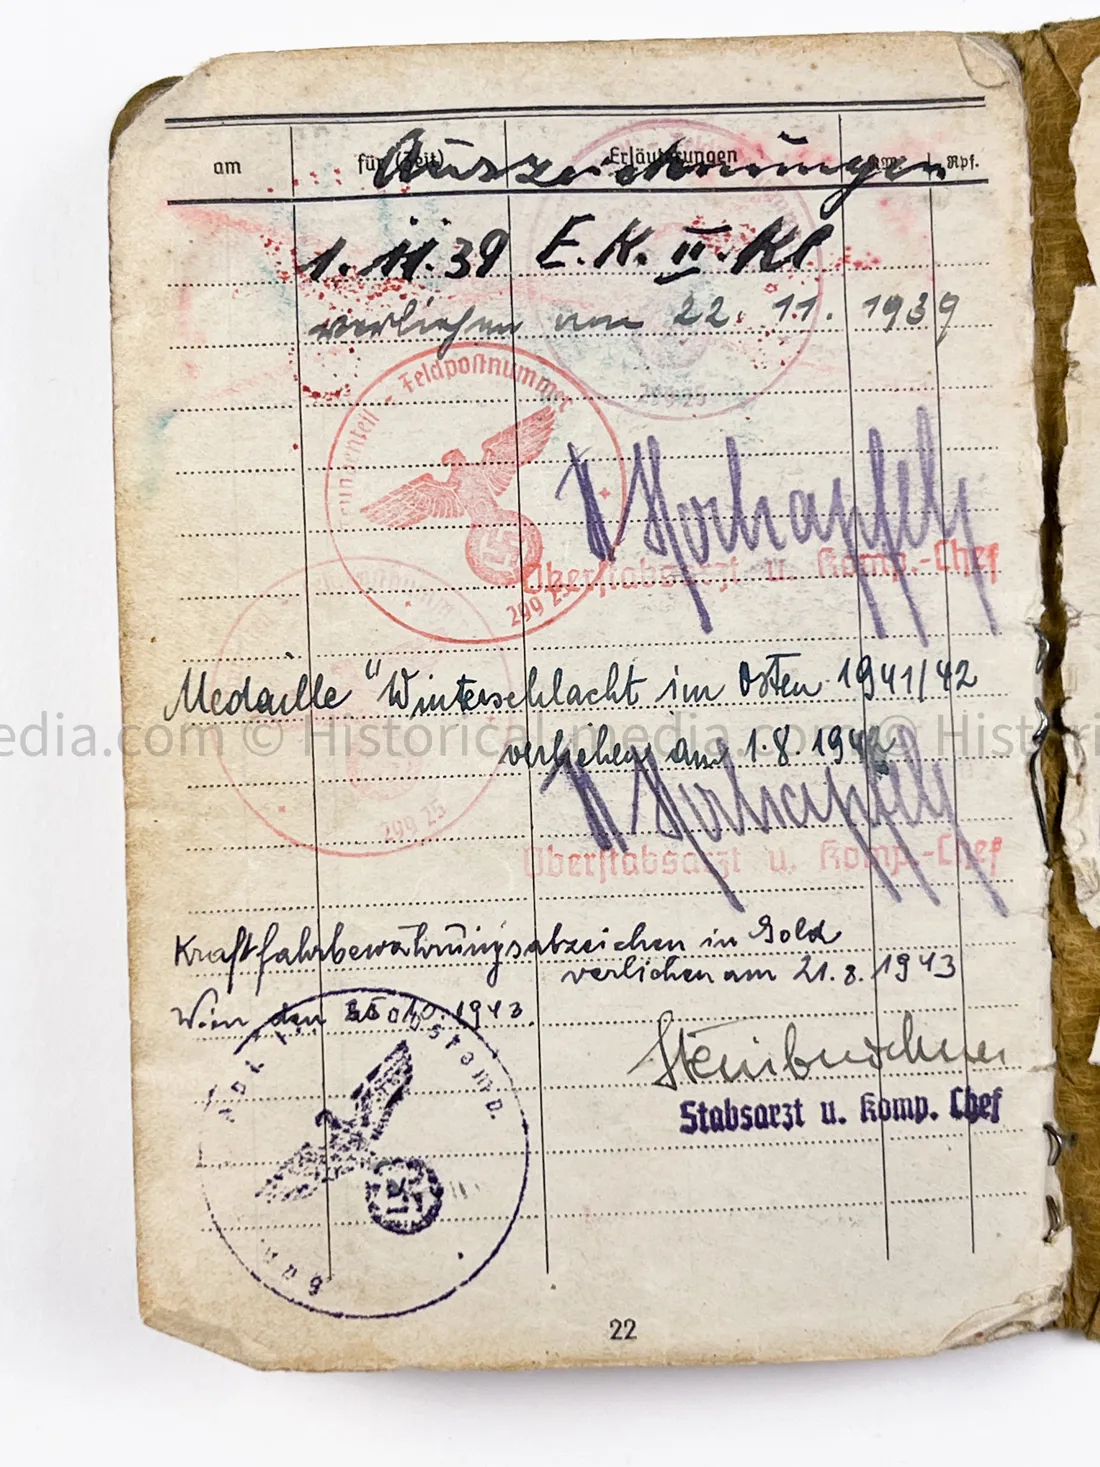 am für (Zeit) Erläuterungen RM Rpf.
Auszeichnungen
1. 11. 39 E.K. II. Kl
verliehen am 22. 11. 1939
Feldpostnummer
29925
29925
Horhapfel
Oberstabsarzt u. Komp.-Chef
Medaille "Winterschlacht im Osten 1941/42
verliehen am 1.8.1942
© Historical-media.com © Historical-media.com © Histori
Horhapfel
29925
Oberstabsarzt u. Komp.-Chef
Kraftfahrbewährungsabzeichen in Gold
verliehen am 21.8.1943
Wien den 1943.
Steinbuchner
Stabsarzt u. Komp. Chef
22